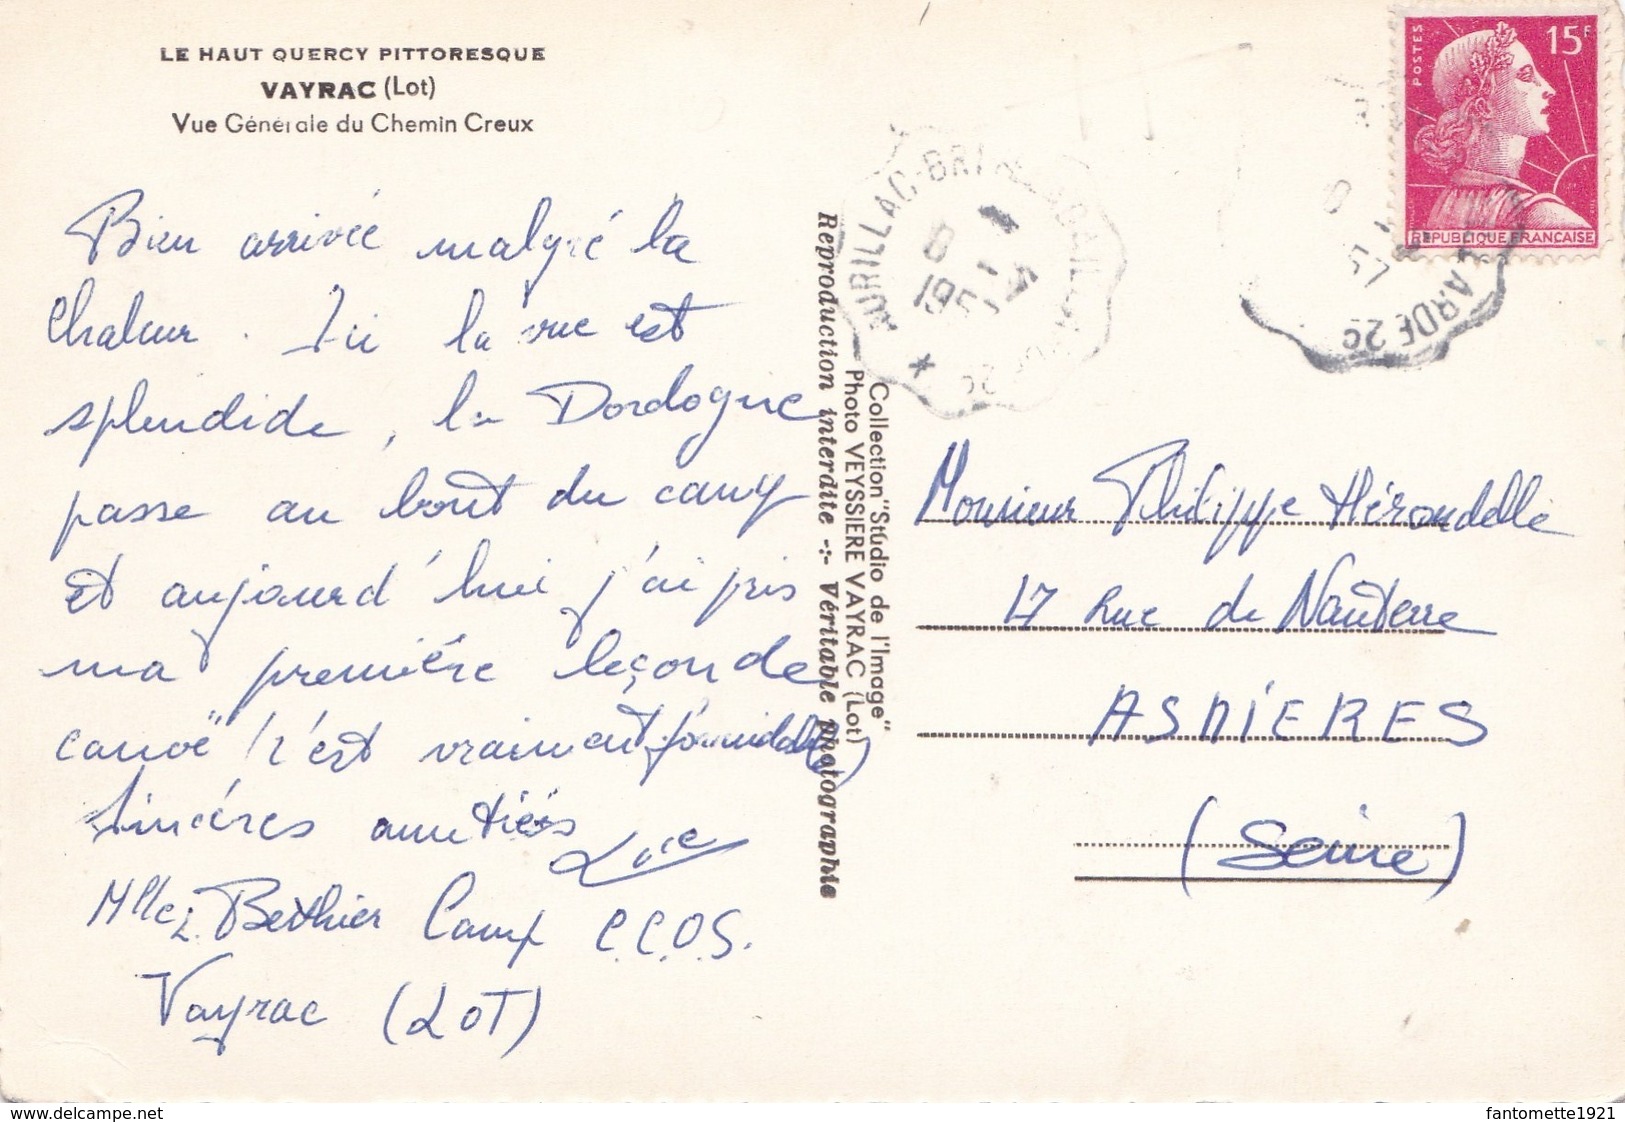 LE HAUT QUERCY PITTORESQUE
VAYRAC (Lot)
Vue Générale du Chemin Creux
Bien arrivée malgré la
chaleur. Ici la vue est
splendide, la Dordogne
passe au bout du camp
et aujourd'hui j'ai pris
ma première leçon de
canoë (c'est vraiment formidable)
Sincères amitiés
Mlle L. Berthier Camp C.C.O.S.
Vayrac (LOT)
Reproduction interdite -:- Véritable photographie
Photo VEYSSIERE VAYRAC (Lot)
Collection "Studio de l'Image"
AURILLAC-BRI
195
2°
POSTES
15F
REPUBLIQUE FRANÇAISE
57
ARDE 2°
Monsieur Philippe Hérondelle
17 Rue de Nanterre
ASNIERES
(Seine)
www.delcampe.net
fantomette1921